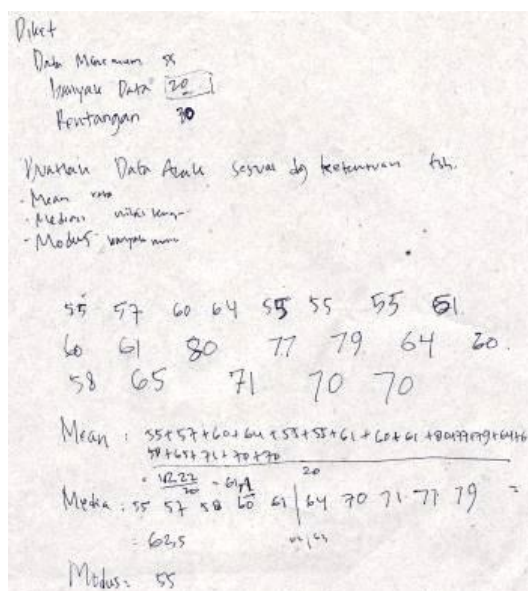 Diket
Data Minimum 55
banyak Data 20
Rentangan 30
Buatlah Data Acak sesuai dg ketentuan tsb.
- Mean
- Median nilai
- Modus banyak
55 57 60 64 55 55 55 61
60 61 80 77 79 64 60
58 65 71 70 70
Mean : 55+57+60+64+55+55+61+60+61+80+77+79+64+6
58+65+71+70+70
20
= 1222
20
Media : 55 57 58 60 61 | 64 70 71 77 79 =
= 62,5
Modus = 55